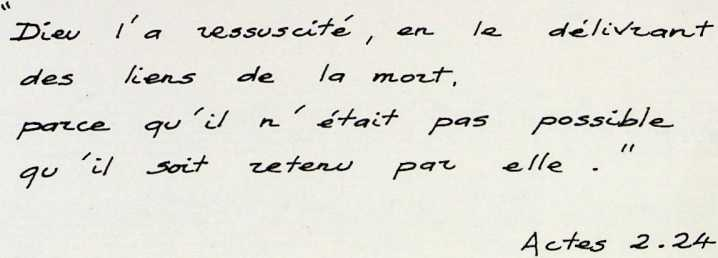 "Dieu l'a ressuscité, en le délivrant
des liens de la mort,
parce qu'il n'était pas possible
qu'il soit retenu par elle."
Actes 2.24